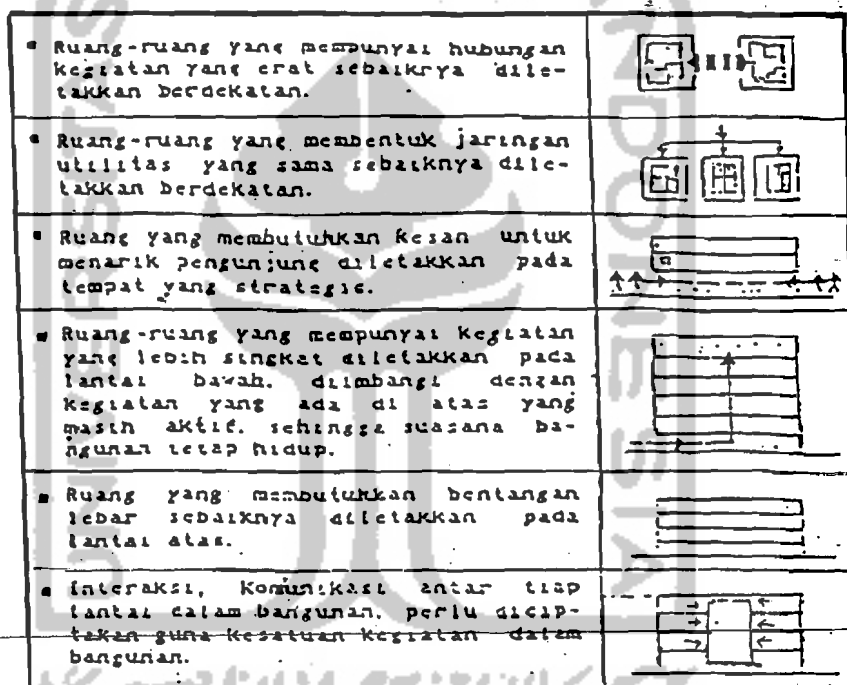 ▪ Ruang-ruang yang mempunyai hubungan
kegiatan yang erat sebaiknya dile-
takkan berdekatan.
▪ Ruang-ruang yang membentuk jaringan
utilitas yang sama sebaiknya dile-
takkan berdekatan.
▪ Ruang yang membutuhkan kesan untuk
menarik pengunjung diletakkan pada
tempat yang strategis.
▪ Ruang-ruang yang mempunyai kegiatan
yang lebih singkat diletakkan pada
lantai bawah, diimbangi dengan
kegiatan yang ada di atas yang
masih aktif, sehingga suasana ba-
ngunan tetap hidup.
▪ Ruang yang membutuhkan bentangan
lebar sebaiknya diletakkan pada
lantai atas.
▪ Interaksi, Komunikasi antar tiap
lantai dalam bangunan, perlu dicip-
takan guna kesatuan kegiatan dalam
bangunan.
UNIVERSITAS
INDONESIA